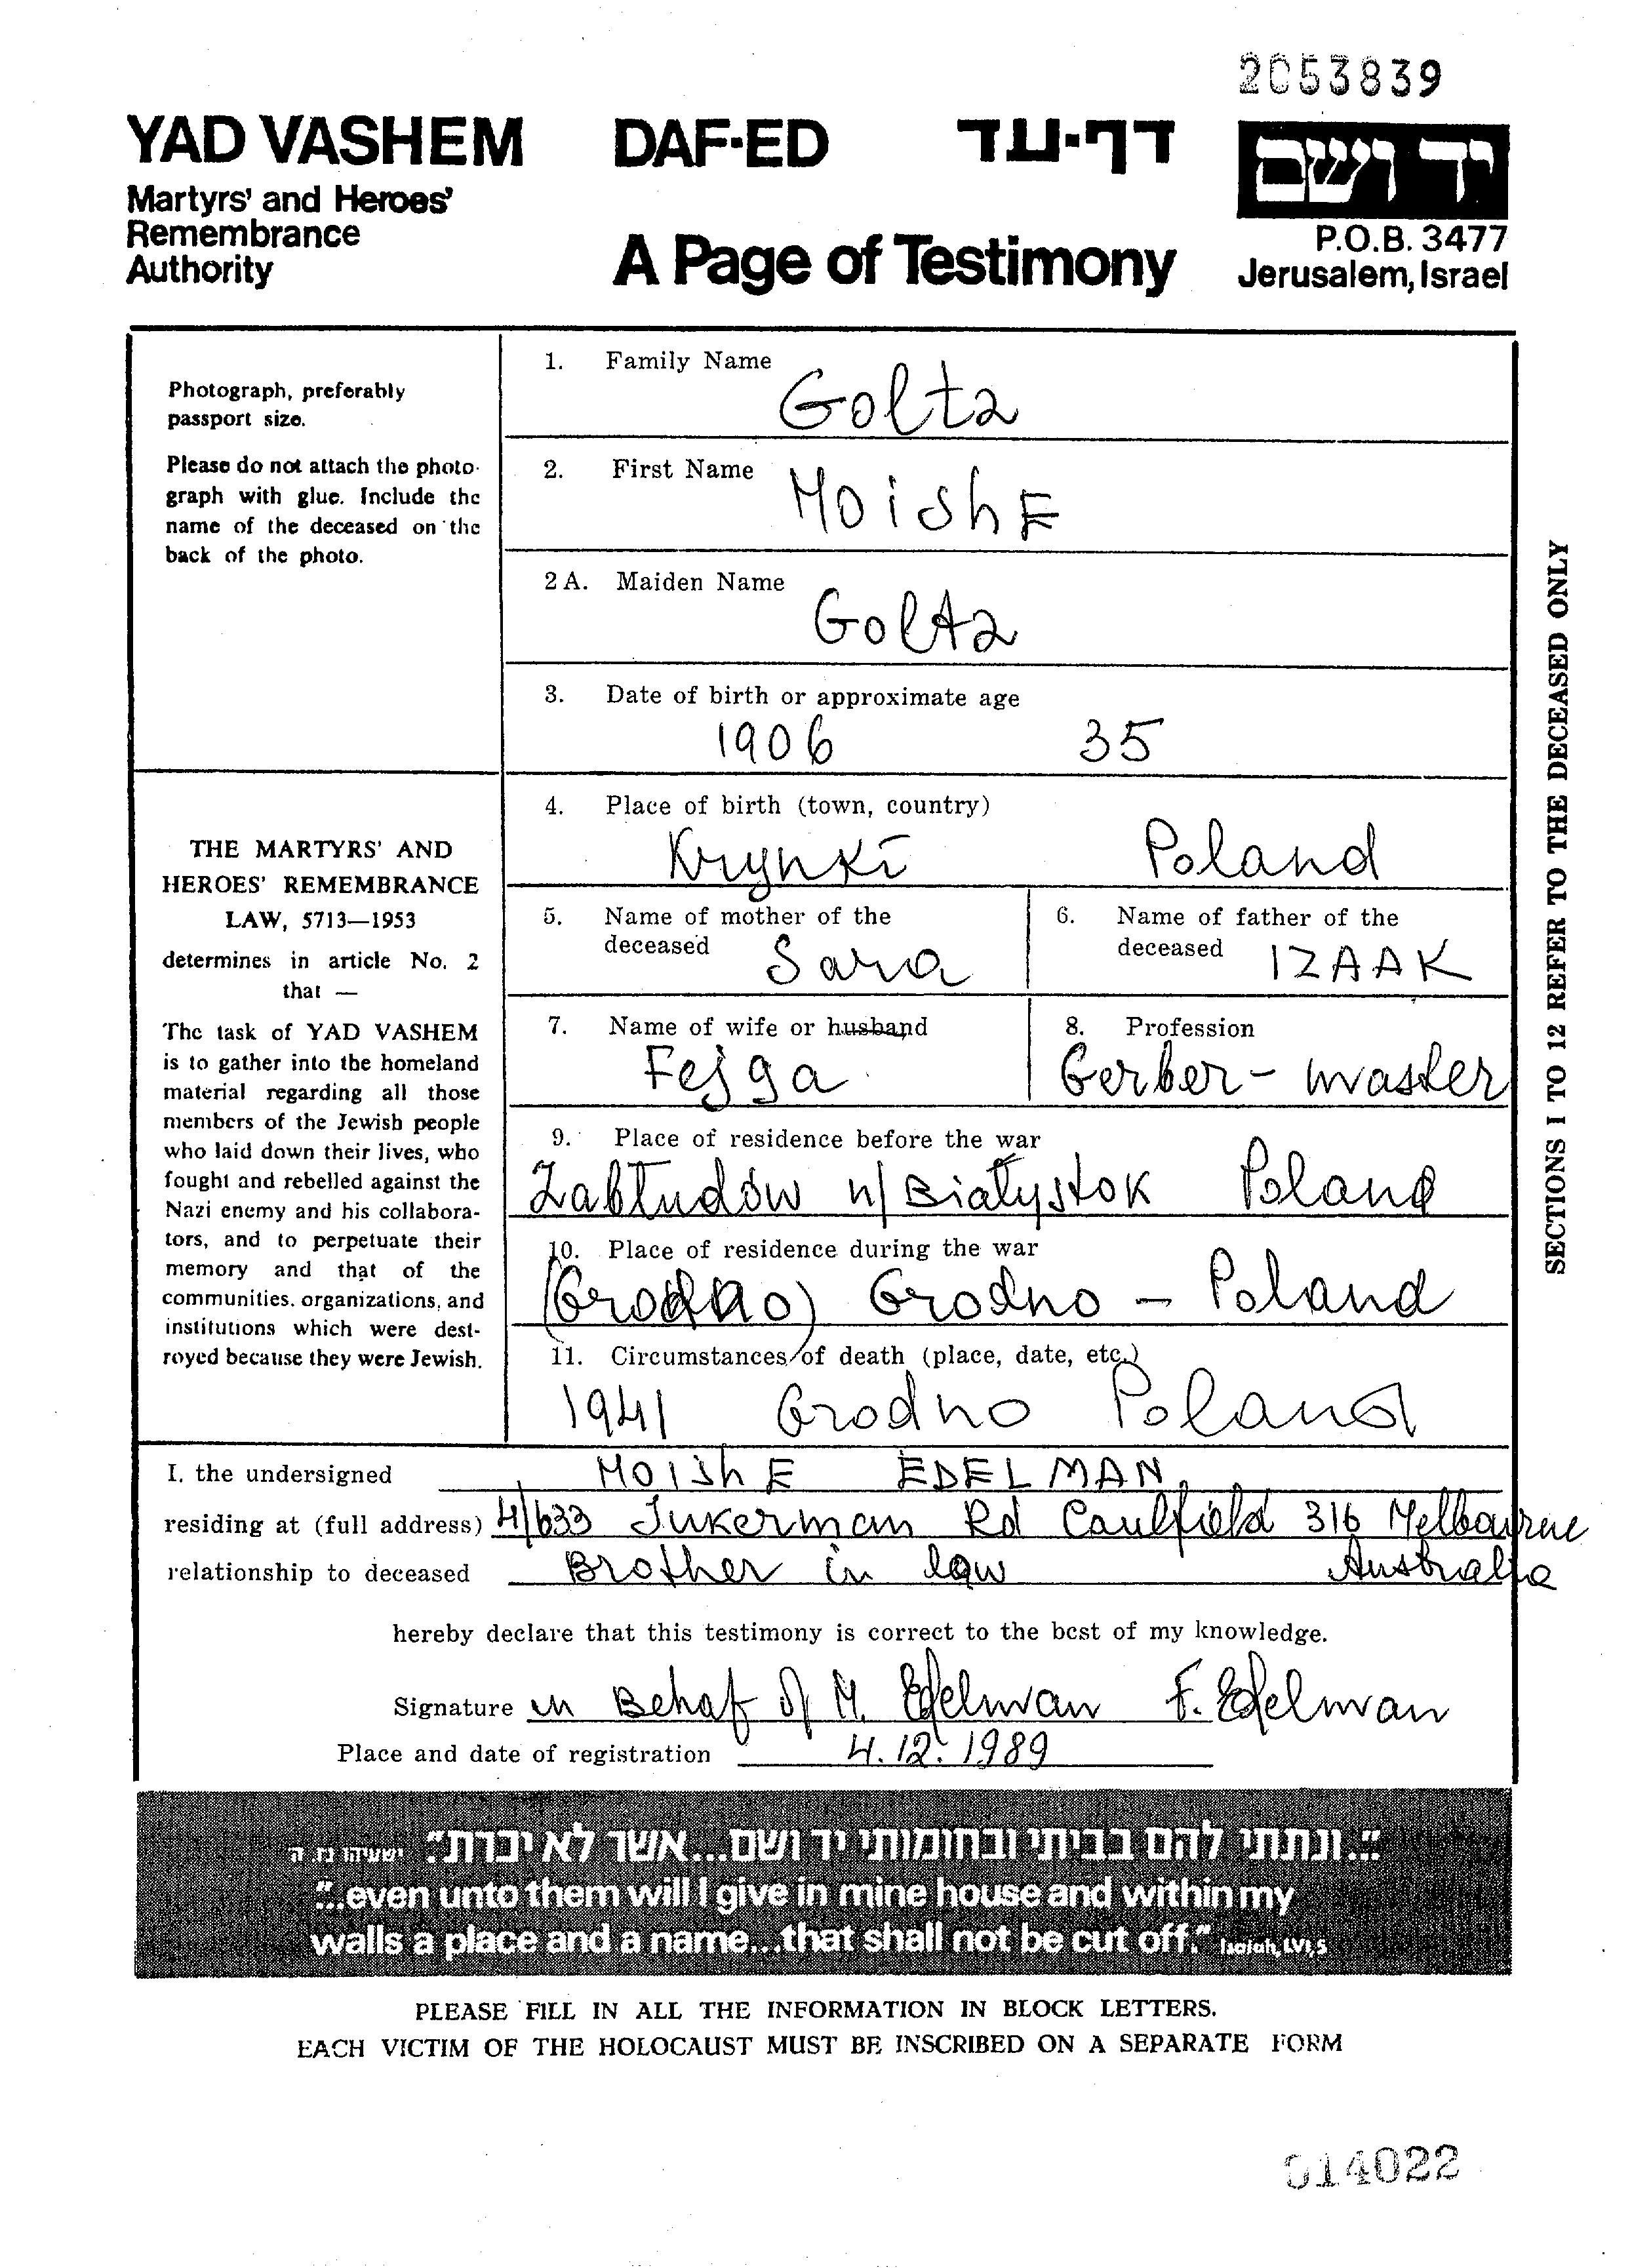 2053839
YAD VASHEM DAF-ED דף-עד יד ושם
Martyrs' and Heroes'
Remembrance
Authority
A Page of Testimony
P.O.B. 3477
Jerusalem, Israel
Photograph, preferably
passport size.
Please do not attach the photo-
graph with glue. Include the
name of the deceased on the
back of the photo.
1. Family Name
Goltz
2. First Name
MOishE
2 A. Maiden Name
Goltz
3. Date of birth or approximate age
1906 35
4. Place of birth (town, country)
Krynki Poland
5. Name of mother of the
deceased Sara
6. Name of father of the
deceased IZAAK
7. Name of wife or husband
Fejga
8. Profession
Gerber - master
9. Place of residence before the war
Zabłudów n/Białystok Poland
10. Place of residence during the war
(Grodno) Grodno - Poland
11. Circumstances of death (place, date, etc.)
1941 Grodno Poland
THE MARTYRS' AND
HEROES' REMEMBRANCE
LAW, 5713—1953
determines in article No. 2
that —
The task of YAD VASHEM
is to gather into the homeland
material regarding all those
members of the Jewish people
who laid down their lives, who
fought and rebelled against the
Nazi enemy and his collabora-
tors, and to perpetuate their
memory and that of the
communities, organizations, and
institutions which were dest-
royed because they were Jewish.
SECTIONS 1 TO 12 REFER TO THE DECEASED ONLY
I, the undersigned MOIShE EDELMAN,
residing at (full address) 4/633 Jukerman Rd Caulfield 316 Melbourne
relationship to deceased Brother in law Australia
hereby declare that this testimony is correct to the best of my knowledge.
Signature in Behaf of M. Edelman F. Edelman
Place and date of registration 4.12.1989
"...ונתתי להם בביתי ובחומותי יד ושם...אשר לא יכרת" ישעיהו נו ה
"...even unto them will I give in mine house and within my
walls a place and a name...that shall not be cut off." Isaiah, LVI,5
PLEASE FILL IN ALL THE INFORMATION IN BLOCK LETTERS.
EACH VICTIM OF THE HOLOCAUST MUST BE INSCRIBED ON A SEPARATE FORM
014022